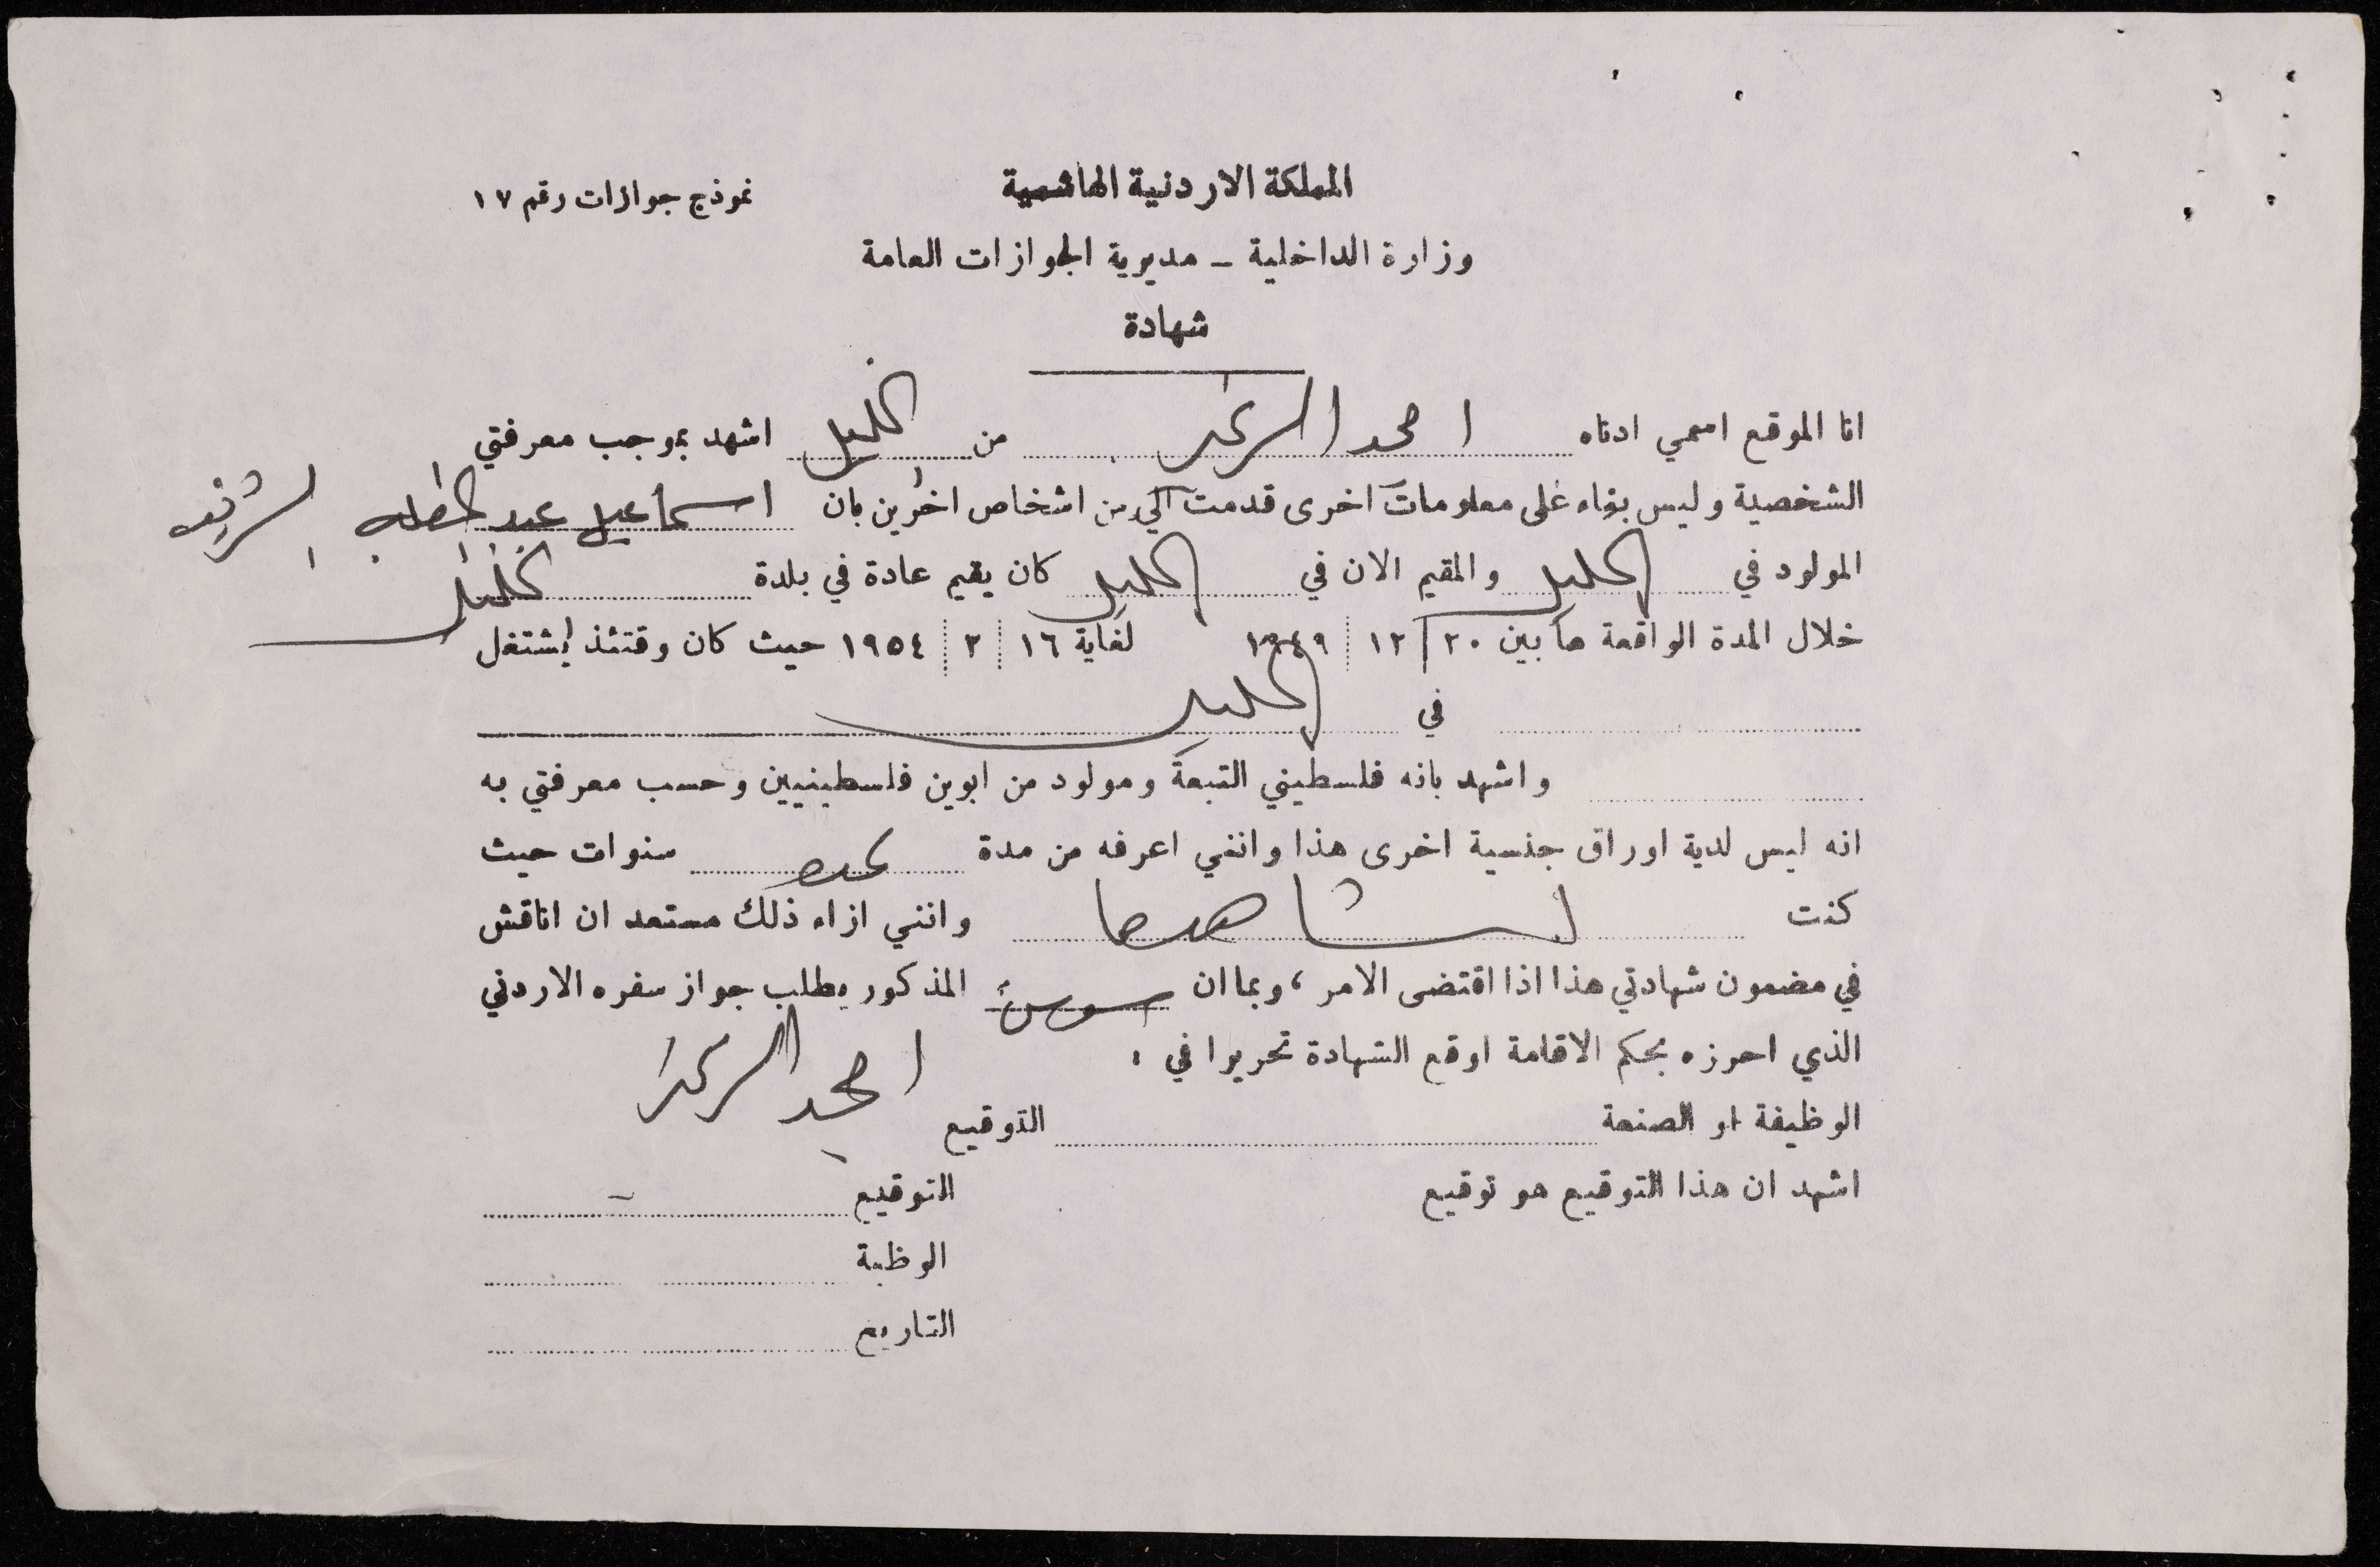 المملكة الاردنية الهاشمية
نموذج جوازات رقم ١٧
وزارة الداخلية - مديرية الجوازات العامة
شهادة
انا الموقع اسمي ادناه احمد من الخليل اشهد بموجب معرفتي
الشخصية وليس بناء على معلومات اخرى قدمت الي من اشخاص اخرين بان اسماعيل عبد الشريف
المولود في الخليل والمقيم الان في الخليل كان يقيم عادة في بلدة الخليل
خلال المدة الواقعة ما بين ٢٠ / ١٢ / ١٩٤٩ لغاية ١٦ / ٢ / ١٩٥٤ حيث كان وقتئذ يشتغل
في الخليل
واشهد بانه فلسطيني التبعة ومولود من ابوين فلسطينيين وحسب معرفتي به
انه ليس لدية اوراق جنسية اخرى هذا وانني اعرفه من مدة سنوات حيث
كنت وانني ازاء ذلك مستعد ان اناقش
في مضمون شهادتي هذا اذا اقتضى الامر ، وبما ان المذكور يطلب جواز سفره الاردني
الذي احرزه بحكم الاقامة اوقع الشهادة تحريرا في .
احمد
الوظيفة او الصنعة التوقيع
اشهد ان هذا التوقيع هو توقيع التوقيع
الوظبة
التاريخ